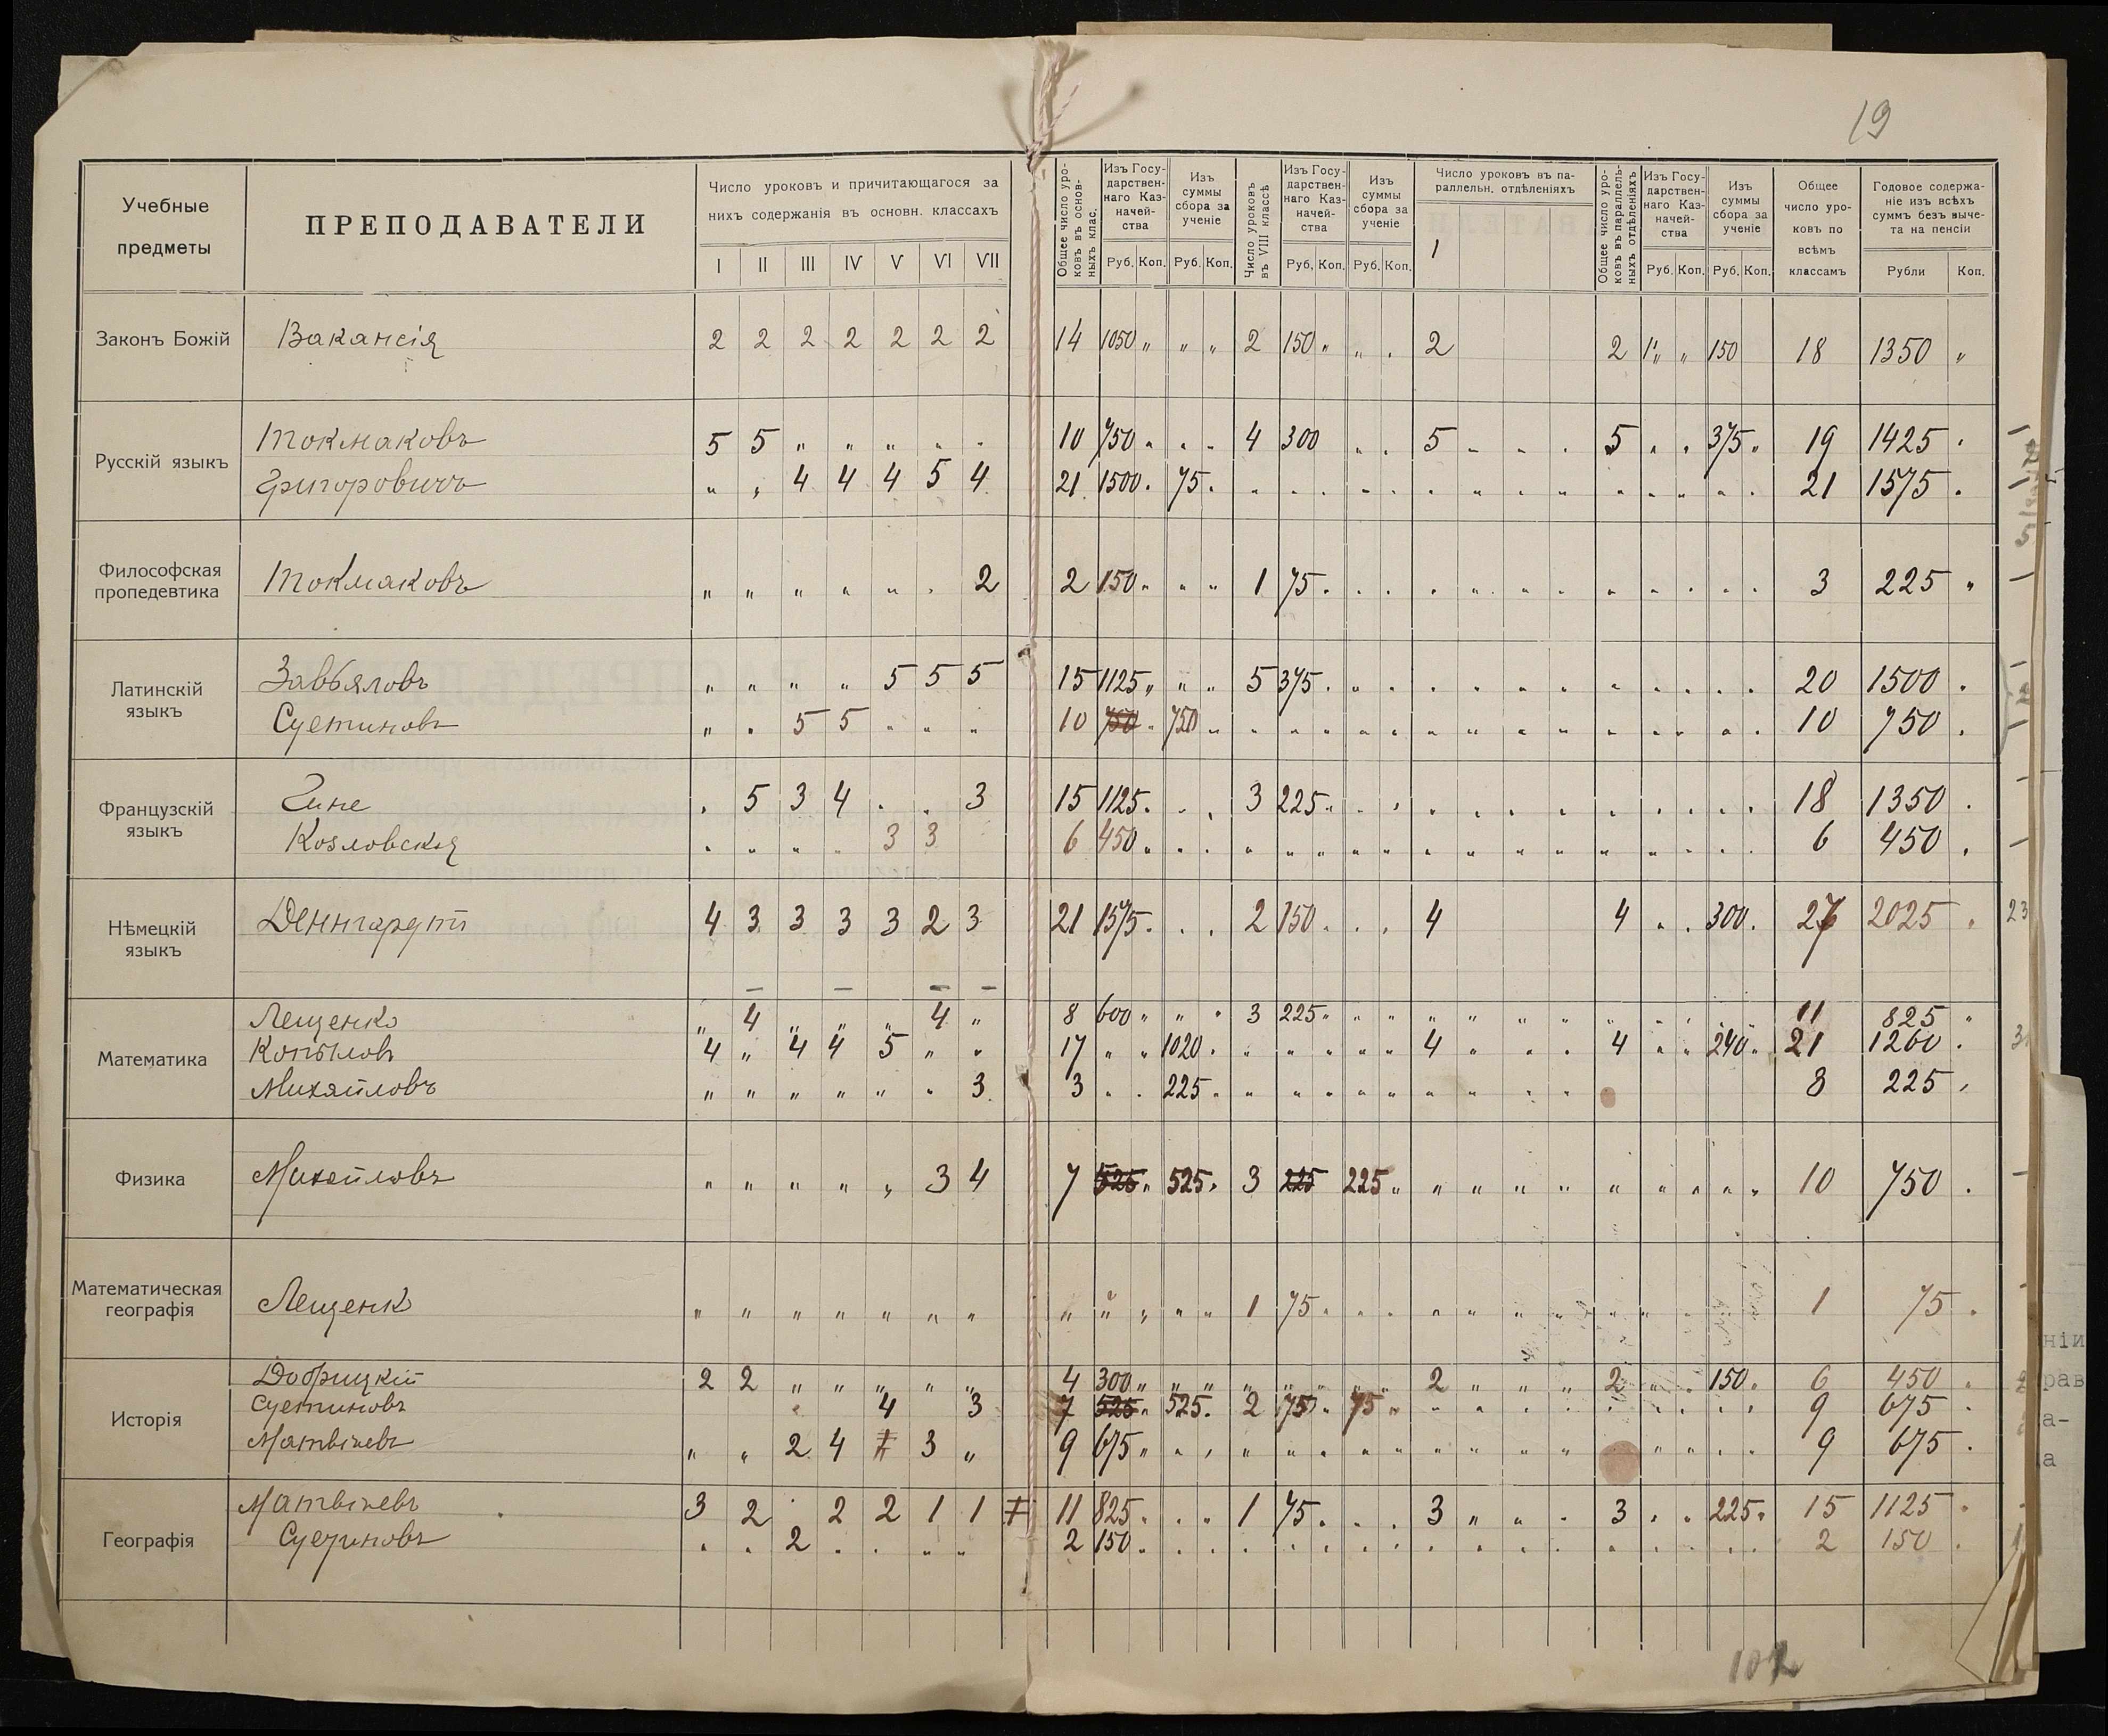 19
Учебные предметы
ПРЕПОДАВАТЕЛИ
Число уроковъ и причитающагося за нихъ содержанія въ основн. классахъ
I II III IV V VI VII
Общее число уроковъ въ основныхъ клас.
Изъ Государственнаго Казначейства
Руб. Коп.
Изъ суммы сбора за ученіе
Руб. Коп.
Число уроковъ въ VIII классѣ
Изъ Государственнаго Казначейства
Руб. Коп.
Изъ суммы сбора за ученіе
Руб. Коп.
Число уроковъ въ параллельн. отдѣленіяхъ
I
Общее число уроковъ въ параллельныхъ отдѣленіяхъ
Изъ Государственнаго Казначейства
Руб. Коп.
Изъ суммы сбора за ученіе
Руб. Коп.
Общее число уроковъ по всѣмъ классамъ
Годовое содержаніе изъ всѣхъ суммъ безъ вычета на пенсіи
Рубли Коп.
Законъ Божій Вакансія 2 2 2 2 2 2 2 14 1050 „ „ „ 2 150 „ „ „ 2 2 „ „ 150 18 1350 „
Русскій языкъ
Токмаковъ 5 5 „ „ „ „ „ 10 750 „ „ „ 4 300 „ „ 5 „ „ „ 5 „ „ 375 „ 19 1425 „
Григоровичъ „ „ 4 4 4 5 4 21 1500 „ 75 „ „ „ „ „ „ „ „ „ „ „ „ „ „ „ 21 1575 „
Философская пропедевтика
Токмаковъ „ „ „ „ „ „ 2 2 150 „ „ „ 1 75 „ „ „ „ „ „ „ „ „ „ „ „ 3 225 „
Латинскій языкъ
Завьяловъ „ „ „ „ 5 5 5 15 1125 „ „ „ 5 375 „ „ „ „ „ „ „ „ „ „ „ „ 20 1500 „
Суетиновъ „ „ 5 5 „ „ „ 10 750 „ 750 „ „ „ „ „ „ „ „ „ „ „ „ „ „ „ 10 750 „
Французскій языкъ
Гине „ 5 3 4 „ „ 3 15 1125 „ „ „ 3 225 „ „ „ „ „ „ „ „ „ „ „ „ 18 1350 „
Козловская „ „ „ „ 3 3 6 450 „ „ „ „ „ „ „ „ „ „ „ „ „ „ „ „ „ 6 450 „
Нѣмецкій языкъ
Деннгардтъ 4 3 3 3 3 2 3 21 1575 „ „ „ 2 150 „ „ „ 4 4 „ „ 300 „ 27 2025 „ 23
Математика
Лещенко „ 4 „ „ „ 4 „ 8 600 „ „ „ 3 225 „ „ „ „ „ „ „ „ „ „ „ „ 11 825 „
Копыловъ 4 „ 4 4 5 „ „ 17 „ „ 1020 „ „ „ „ „ „ 4 „ „ „ 4 „ „ 240 „ 21 1260 „
Михайловъ „ „ „ „ „ „ 3 3 „ „ 225 „ „ „ „ „ „ „ „ „ „ 8 225 „
Физика
Михайловъ „ „ „ „ „ 3 4 7 525 „ 525 „ 3 225 225 „ „ „ „ „ „ „ „ „ „ 10 750 „
Математическая географія
Лещенк „ „ „ „ „ „ „ „ „ „ „ „ 1 75 „ „ „ „ „ „ „ „ „ „ 1 75 „
Исторія
Добрицкій 2 2 „ „ „ „ „ 4 300 „ „ „ „ „ „ „ „ 2 „ „ „ 2 „ „ 150 „ 6 450 „
Суетиновъ 4 3 7 525 „ 525 „ 2 75 „ 75 „ „ „ „ „ „ „ „ „ „ 9 675 „
Матвѣевъ „ „ 2 4 3 „ 9 675 „ „ „ „ „ „ „ „ „ „ „ „ „ „ „ „ 9 675 „
Географія
Матвѣевъ 3 2 „ 2 2 1 1 11 825 „ „ „ 1 75 „ „ „ 3 „ „ „ 3 „ „ 225 „ 15 1125 „
Суетиновъ „ „ 2 „ „ „ „ 2 150 „ „ „ „ „ „ „ „ „ „ „ „ „ „ „ „ „ 2 150 „
ніи
рав
а-
а